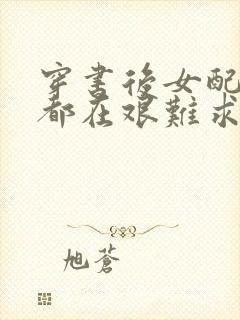 穿書後女配
都在艱難求
旭蒼